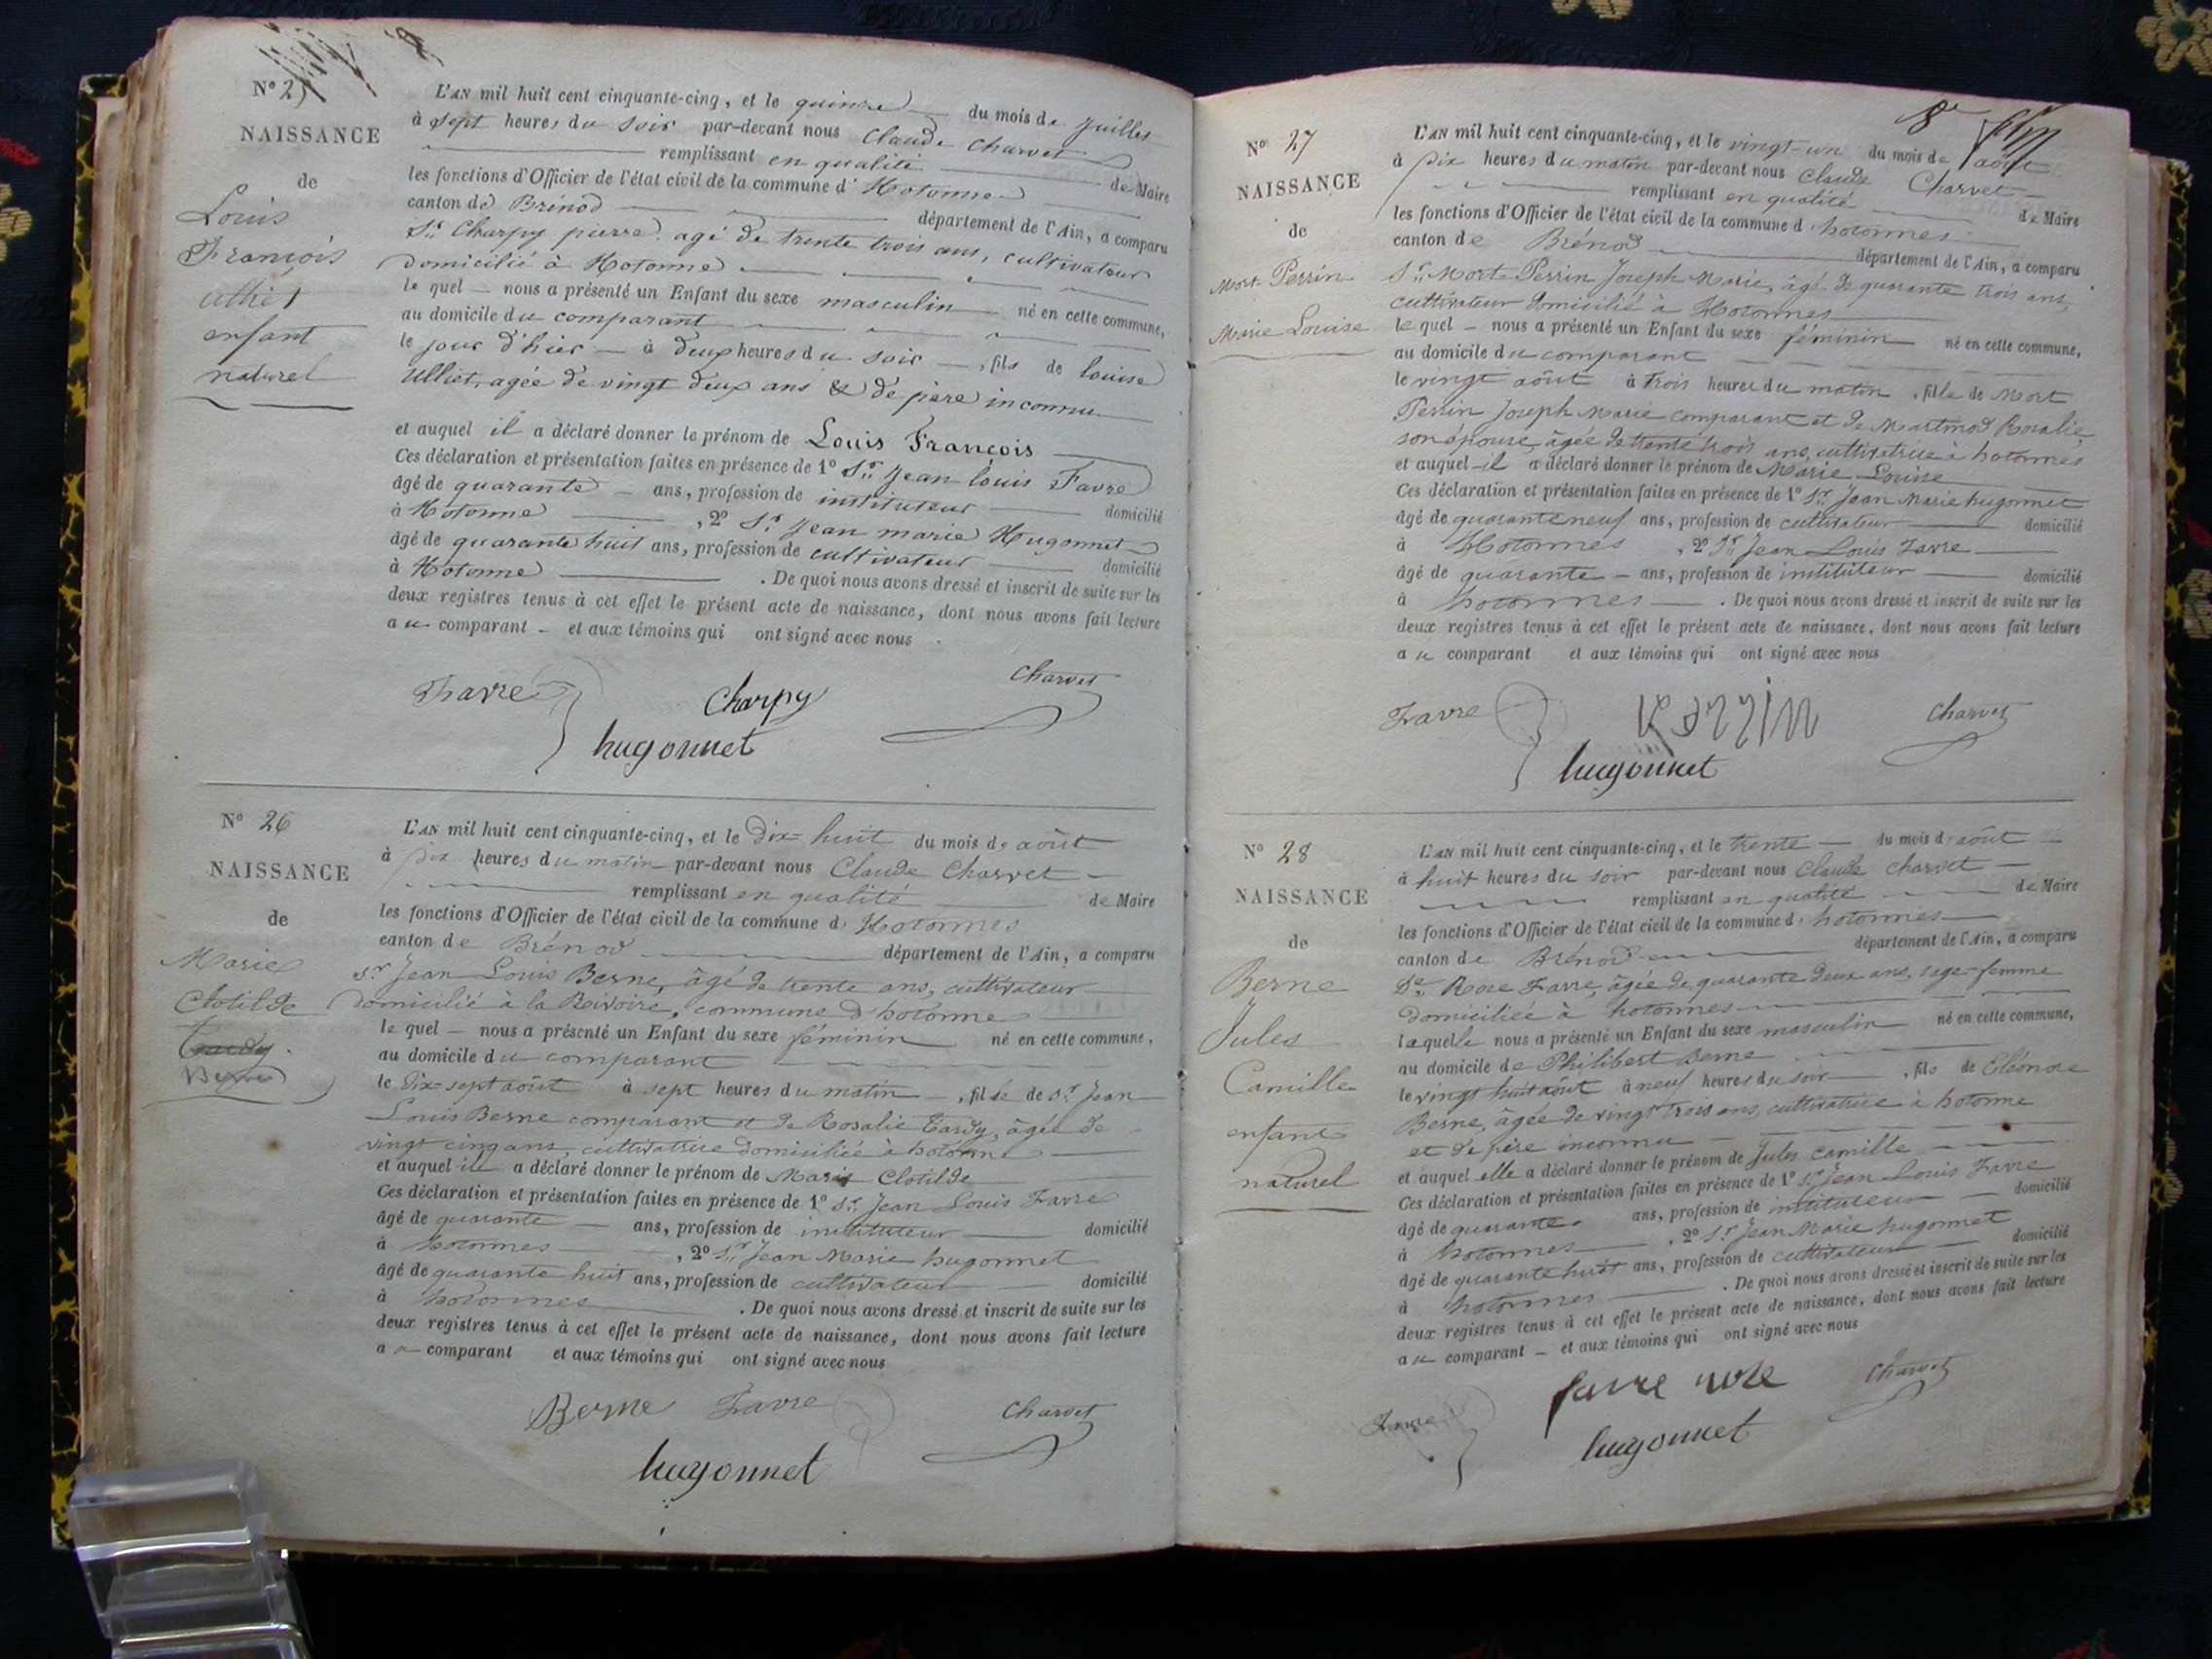 N° 25
NAISSANCE
de
Louis
François
enfant
naturel
L'AN mil huit cent cinquante-cinq, et le quinze du mois de Juillet
à sept heures du soir par-devant nous Claude Charvet
remplissant en qualité de Maire
les fonctions d'Officier de l'état civil de la commune d' Hotonne
canton de Brénod département de l'Ain, a comparu
Sr. Charpy pierre. agé de trente trois ans, cultivateur
domicilié à Hotonne
le quel nous a présenté un Enfant du sexe masculin né en cette commune,
au domicile du comparant
le jour d'hier à deux heures du soir, fils de louise
Ulliet, agée de vingt deux ans & de père inconnu
et auquel il a déclaré donner le prénom de Louis François
Ces déclaration et présentation faites en présence de 1° Sr. Jean louis Favre
âgé de quarante ans, profession de instituteur domicilié
à Hotonne, 2° Sr. Jean marie Hugonnet
âgé de quarante huit ans, profession de cultivateur domicilié
à Hotonne. De quoi nous avons dressé et inscrit de suite sur les
deux registres tenus à cet effet le présent acte de naissance, dont nous avons fait lecture
au comparant et aux témoins qui ont signé avec nous
Favre Charpy Charvet
hugonnet
N° 26
NAISSANCE
de
Marie
Clotilde
Tardy
Berne
L'AN mil huit cent cinquante-cinq, et le dix-huit du mois d' août
à dix heures du matin par-devant nous Claude Charvet
remplissant en qualité de Maire
les fonctions d'Officier de l'état civil de la commune d' Hotonnes
canton de Brénod département de l'Ain, a comparu
sr. Jean Louis Berne, âgé de trente ans, cultivateur
domicilié à la commune d'hotonne
le quel nous a présenté un Enfant du sexe féminin né en cette commune,
au domicile du comparant
le dix-sept août à sept heures du matin, fille de sr. Jean
Louis Berne comparant et de Rosalie Tardy, âgée de
vingt cinq ans, cultivatrice domiciliée à hotonne
et auquel il a déclaré donner le prénom de Marie Clotilde
Ces déclaration et présentation faites en présence de 1° sr. Jean Louis Favre
âgé de quarante ans, profession de instituteur domicilié
à hotonnes, 2° sr. Jean Marie hugonnet
âgé de quarante huit ans, profession de cultivateur domicilié
à hotonnes. De quoi nous avons dressé et inscrit de suite sur les
deux registres tenus à cet effet le présent acte de naissance, dont nous avons fait lecture
au comparant et aux témoins qui ont signé avec nous
Berne Favre Charvet
hugonnet
N° 27
NAISSANCE
de
Mort-Perrin
Marie Louise
L'AN mil huit cent cinquante-cinq, et le vingt-un du mois de août
à dix heures du matin par-devant nous Claude Charvet
remplissant en qualité de Maire
les fonctions d'Officier de l'état civil de la commune d' hotonnes
canton de Brénod département de l'Ain, a comparu
Sr. Mort-Perrin Joseph Marie, âgé de quarante trois ans,
cultivateur domicilié à Hotonnes
le quel nous a présenté un Enfant du sexe féminin né en cette commune,
au domicile du comparant
le vingt août à trois heures du matin, fille de Mort
Perrin Joseph Marie comparant et de Martinod Rosalie
son épouse, âgée de trente trois ans, cultivatrice à hotonnes
et auquel il a déclaré donner le prénom de Marie Louise
Ces déclaration et présentation faites en présence de 1° Sr. Jean Marie hugonnet
âgé de quarante neuf ans, profession de cultivateur domicilié
à Hotonnes, 2° Sr. Jean Louis Favre
âgé de quarante ans, profession de instituteur domicilié
à hotonnes. De quoi nous avons dressé et inscrit de suite sur les
deux registres tenus à cet effet le présent acte de naissance, dont nous avons fait lecture
au comparant et aux témoins qui ont signé avec nous
Favre Charvet
hugonnet
N° 28
NAISSANCE
de
Berne
Jules
Camille
enfant
naturel
L'AN mil huit cent cinquante-cinq, et le trente du mois d' août
à huit heures du soir par-devant nous Claude Charvet
remplissant en qualité de Maire
les fonctions d'Officier de l'état civil de la commune d' hotonnes
canton de Brénod département de l'Ain, a comparu
De. Rose Favre, âgée de quarante deux ans, sage-femme
domiciliée à hotonnes
laquelle nous a présenté un Enfant du sexe masculin né en cette commune,
au domicile de Philibert Berne
le vingt huit août à neuf heures du soir, fils de Eléonore
Berne, âgée de vingt trois ans, cultivatrice à hotonne
et de père inconnu
et auquel elle a déclaré donner le prénom de Jules Camille
Ces déclaration et présentation faites en présence de 1° sr. Jean Louis Favre
âgé de quarante ans, profession de instituteur domicilié
à hotonnes, 2° sr. Jean Marie hugonnet
âgé de quarante huit ans, profession de cultivateur domicilié
à hotonnes. De quoi nous avons dressé et inscrit de suite sur les
deux registres tenus à cet effet le présent acte de naissance, dont nous avons fait lecture
au comparant et aux témoins qui ont signé avec nous
Favre favre rose Charvet
hugonnet